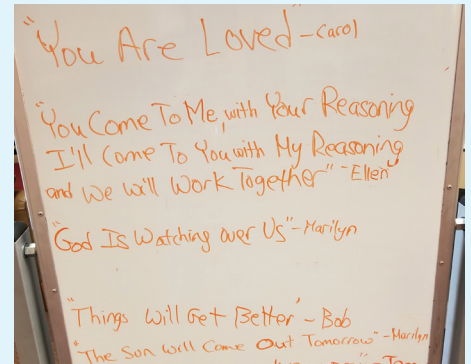 "You Are Loved" - Carol
"You Come To Me, with Your Reasoning
I'll Come To You with My Reasoning
and We Will Work Together" - Ellen
"God Is Watching over Us" - Marilyn
"Things Will Get Better" - Bob
"The Sun Will Come Out Tomorrow" - Marilyn